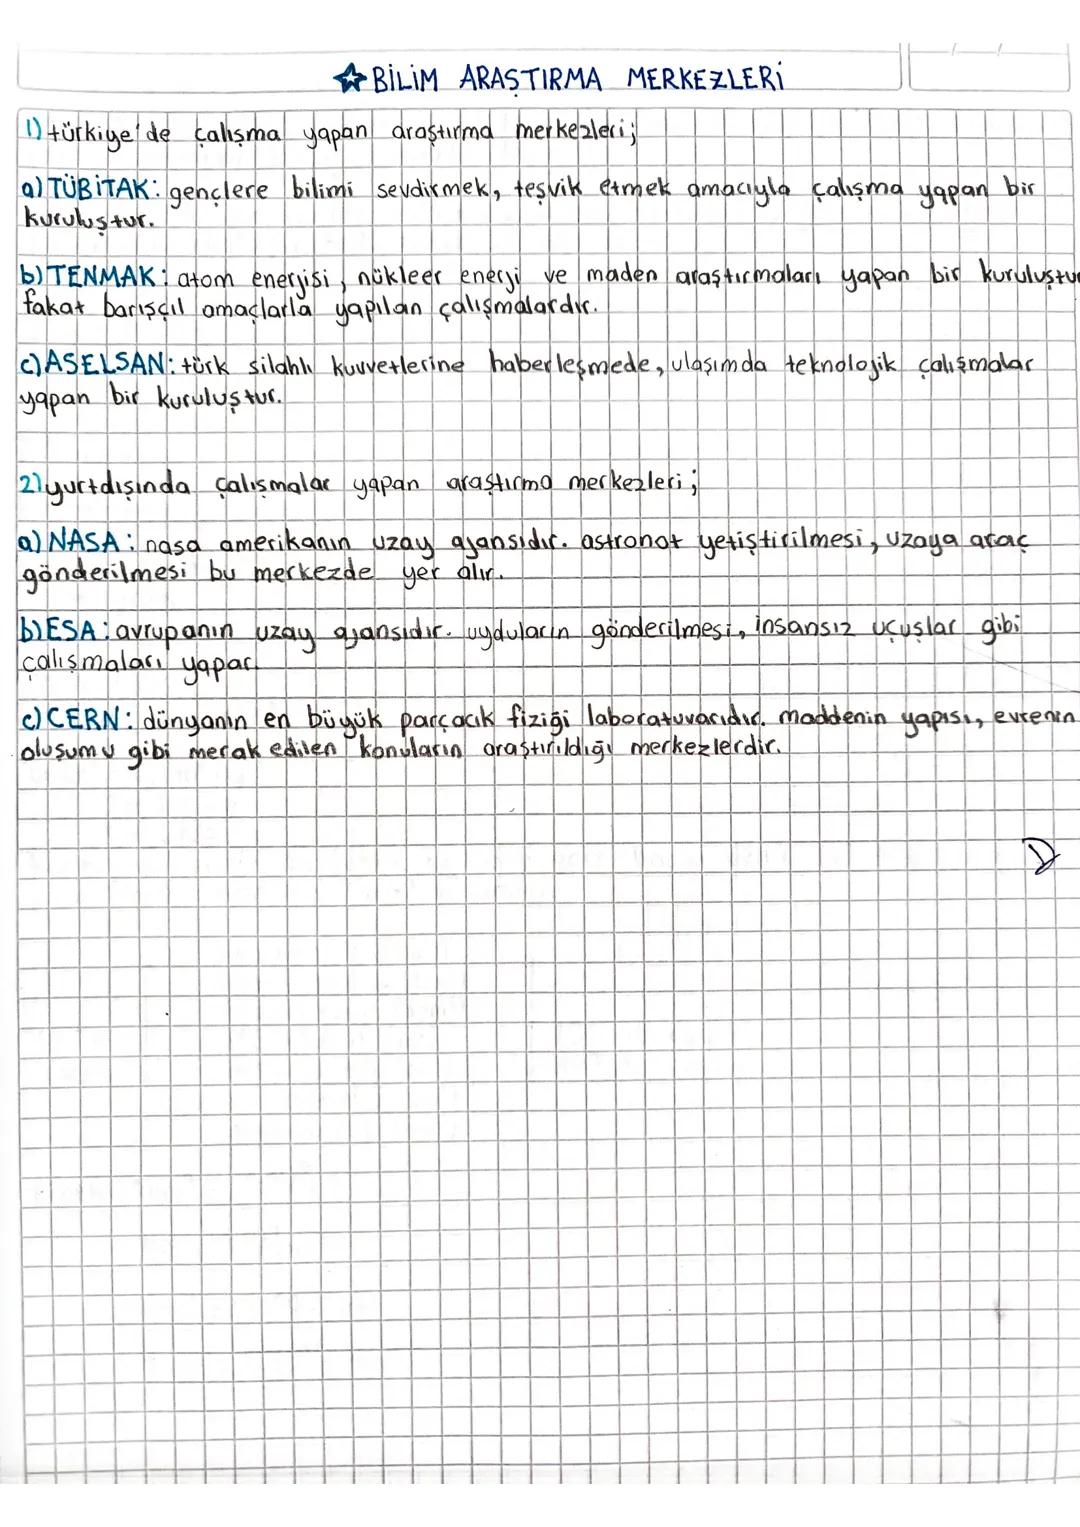 ☆ BİLİM ARAŞTIRMA MERKEZLERİ
1) türkiye'de çalışma yapan araştırma merkezleri;
a) TÜBİTAK: gençlere bilimi sevdirmek, teşvik etmek amacıyla çalışma yapan bir
kuruluştur.
b) TENMAK: atom enerjisi, nükleer enerji ve maden araştırmaları yapan bir kuruluştur
fakat barışçıl amaçlarla yapılan çalışmalardır.
c) ASELSAN: türk silahlı kuvvetlerine haberleşmede, ulaşımda teknolojik çalışmalar
yapan bir kuruluştur.
2) yurtdışında çalışmalar yapan araştırma merkezleri;
a) NASA: nasa amerikanın uzay ajansıdır. astronot yetiştirilmesi, uzaya araç
gönderilmesi bu merkezde yer alır.
b) ESA: avrupanın uzay ajansıdır. uyduların gönderilmesi, insansız uçuşlar gibi
çalışmaları yapar.
c) CERN: dünyanın en büyük parçacık fiziği laboratuvarıdır. maddenin yapısı, evrenin
oluşumu gibi merak edilen konuların araştırıldığı merkezlerdir.